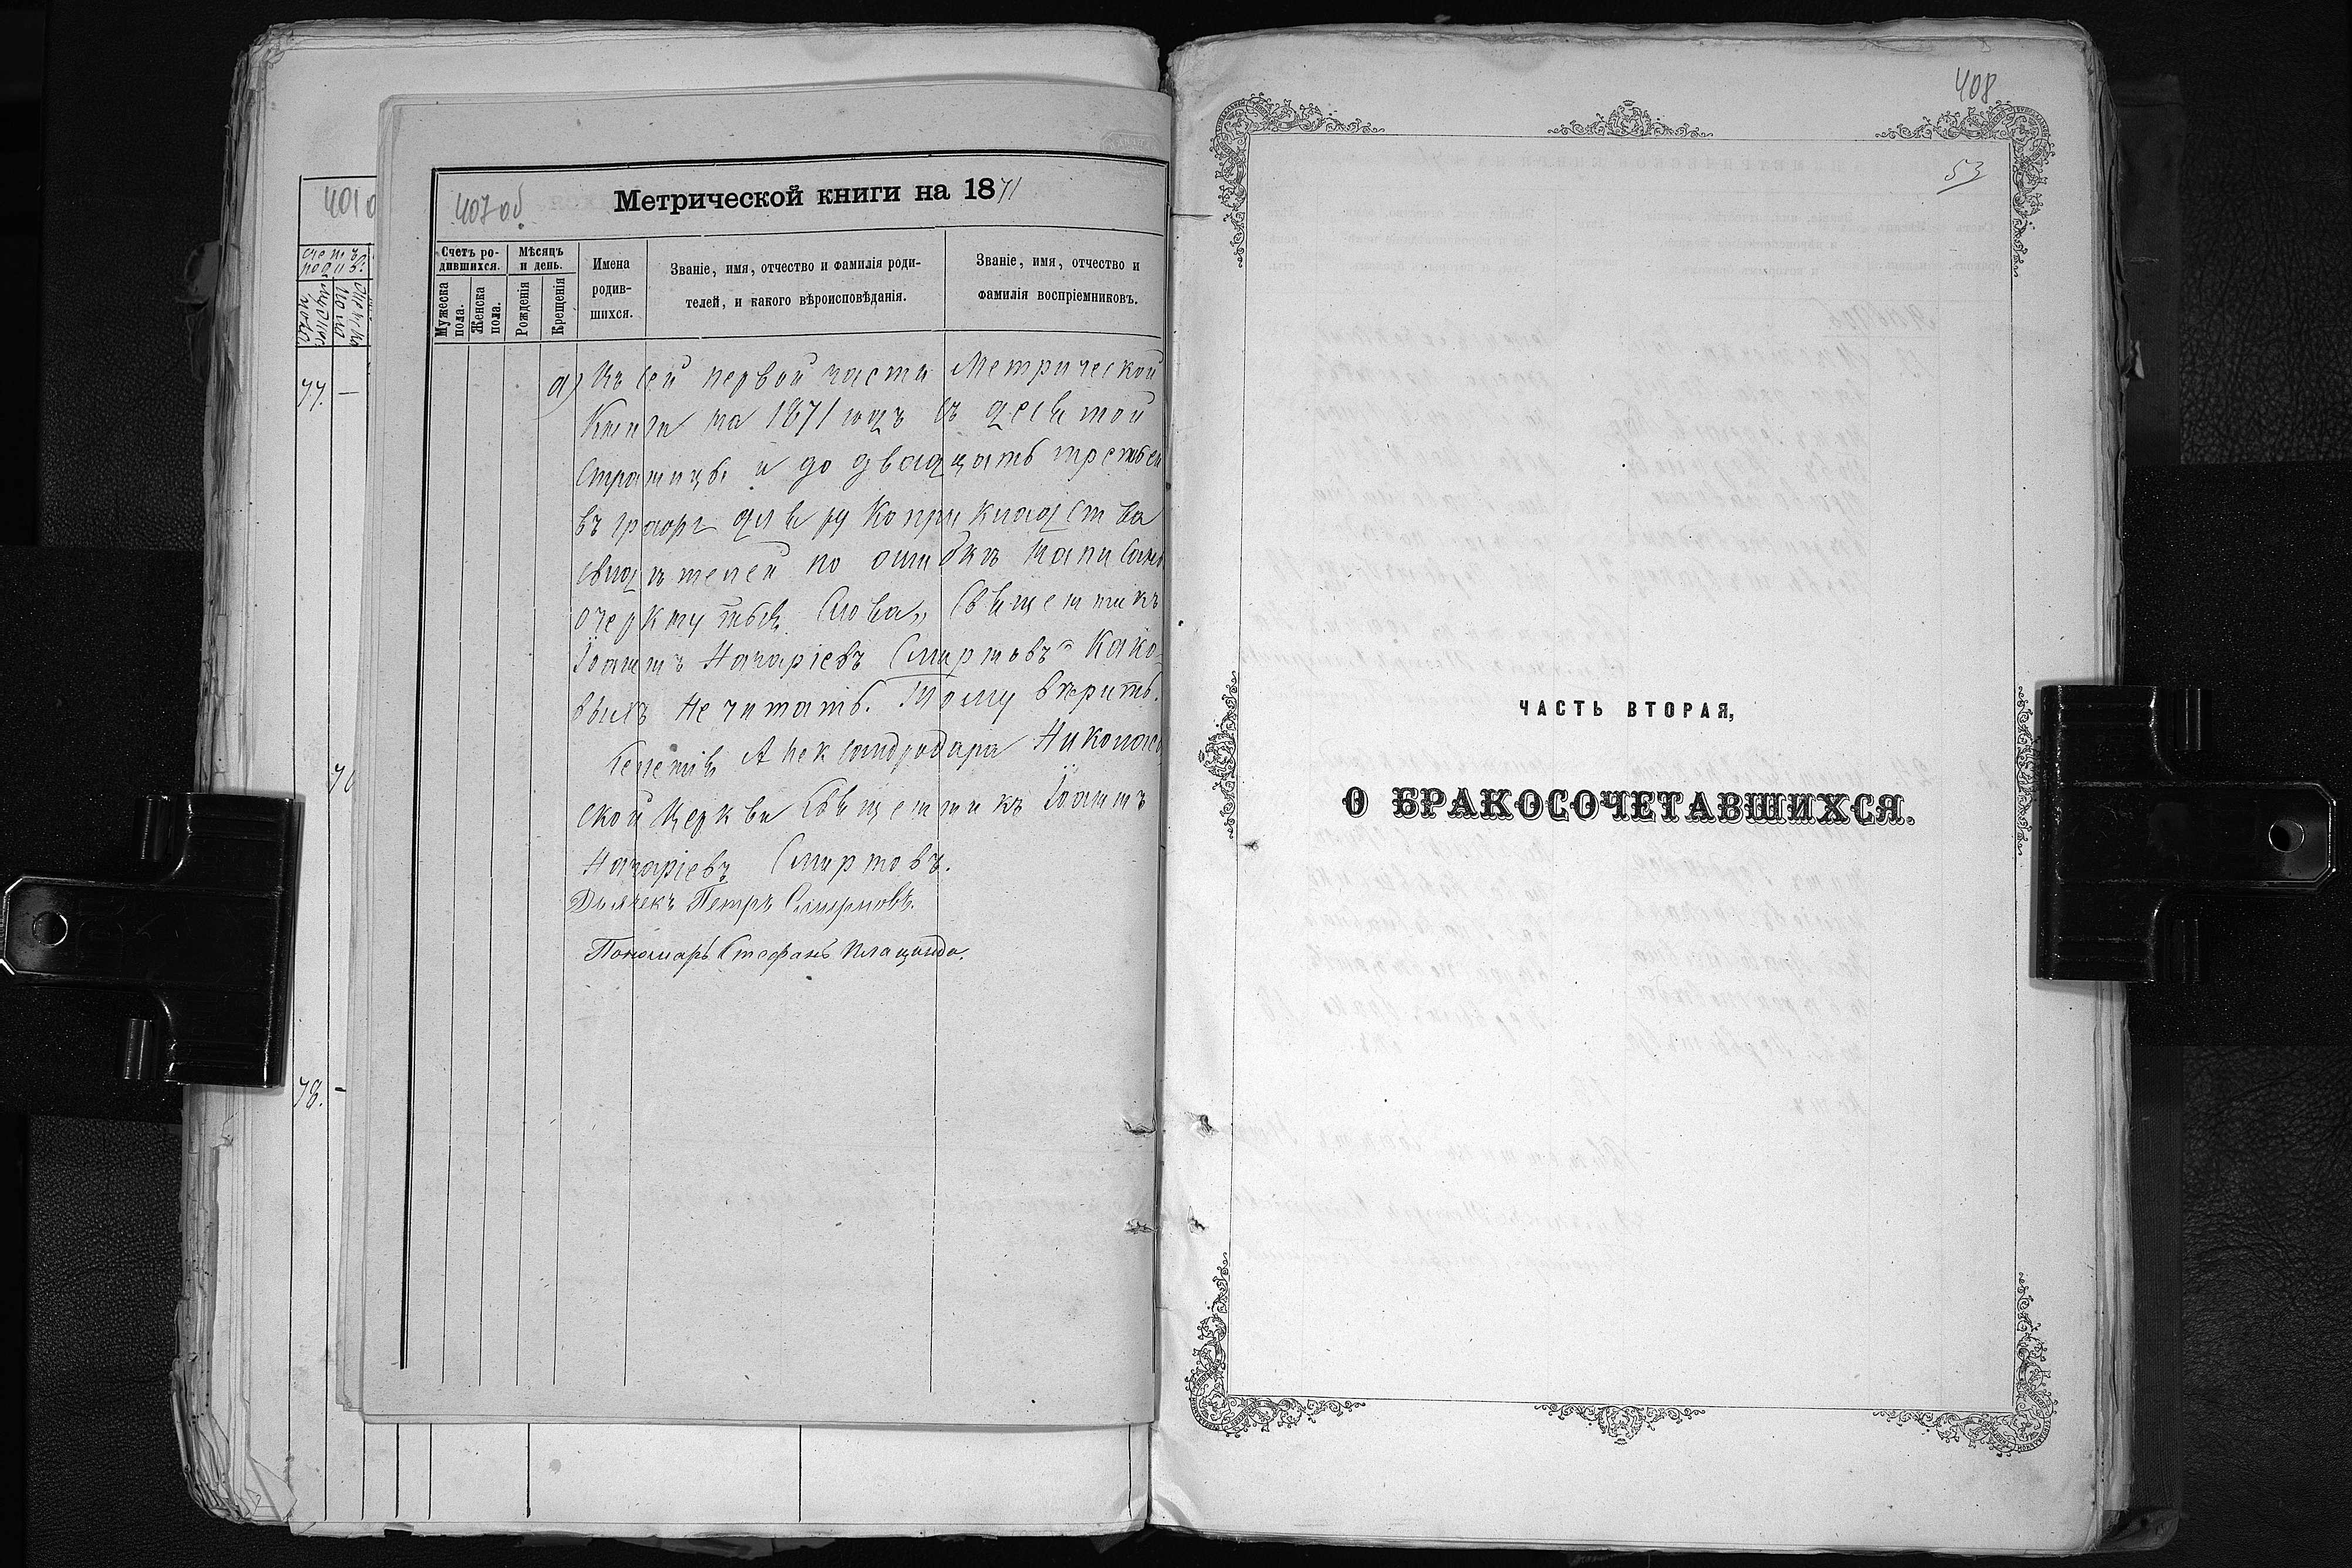 401 о
77.
—
78.
407 об
Метрической книги на 1871
Счетъ ро-
дившихся.
Мѣсяцъ
и день.
Мужеска
пола.
Женска
пола.
Рожденія
Крещенія
Имена
родив-
шихся.
Званіе, имя, отчество и фамилія роди-
телей, и какого вѣроисповѣданія.
Званіе, имя, отчество и
фамилія воспріемниковъ.
а) Въ сей первой части Метрической
Книги на 1871 годъ съ десятой
страницы и до двадцать третьей
въ графѣ для рукоприкладства
свидѣтелей по ошибкѣ написаны
очеркнутыя слова „Священникъ
Іоаннъ Назаріевъ Смирновъ“ како-
выхъ не читать. Тому вѣрить.
Селенія Александродара Николаев
ской Церкви Священникъ Іоаннъ
Назаріевъ Смирновъ.
Дьячекъ Петръ Смирновъ.
Пономарь Стефанъ Плащинда.
408
53
ЧАСТЬ ВТОРАЯ,
О БРАКОСОЧЕТАВШИХСЯ.